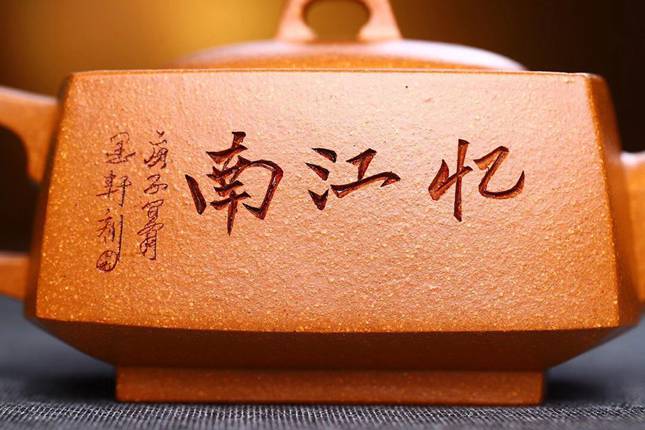 忆江南
庚子夏月
墨轩刻